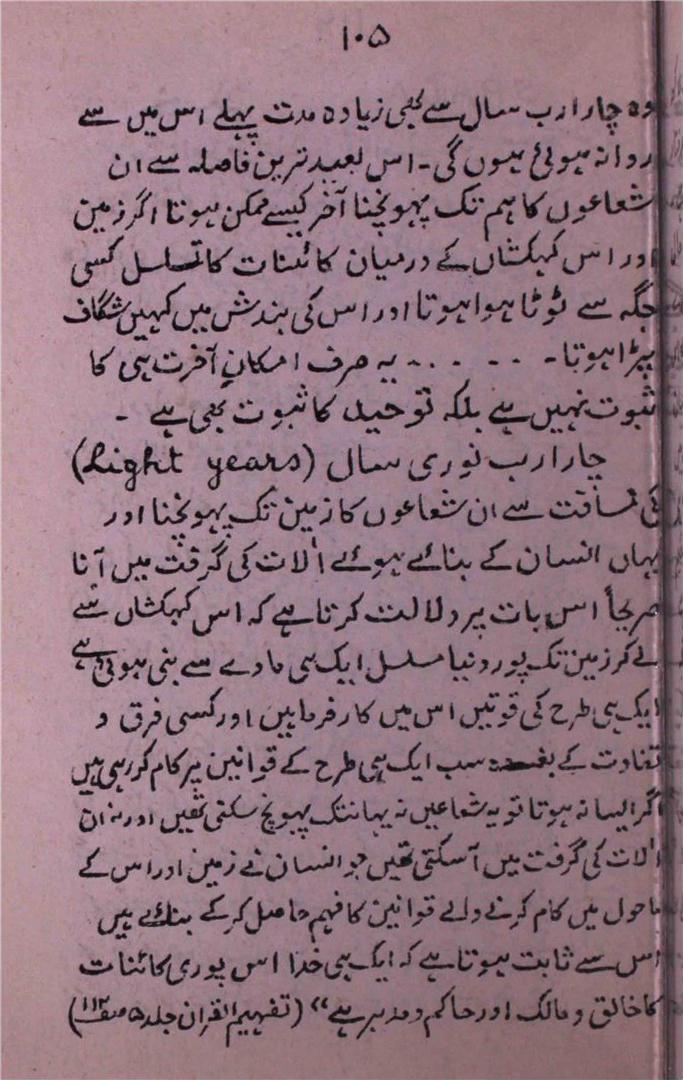 ۱۰۵
وہ چار ارب سال سے بھی زیادہ مدت پہلے اس میں سے
روانہ ہوئی ہوں گی۔ اس بعید ترین فاصلہ سے ان
شعاعوں کا ہم تک پہونچنا آخر کیسے ممکن ہوتا اگر زمین
اور اس کہکشاں کے درمیان کائنات کا تسلسل کسی
جگہ سے ٹوٹا ہوا ہوتا اور اس کی بندش میں کہیں شگاف
پڑا ہوتا۔ - - . . . یہ صرف امکانِ آخرت ہی کا
ثبوت نہیں ہے بلکہ توحید کا ثبوت بھی ہے ۔
چار ارب نوری سال (Light years)
کی مسافت سے ان شعاعوں کا زمین تک پہونچنا اور
یہاں انسان کے بنائے ہوئے آلات کی گرفت میں آنا
صریحاً اس بات پر دلالت کرتا ہے کہ اس کہکشاں سے
لے کر زمین تک پور دنیا مسلسل ایک ہی مادے سے بنی ہوئی ہے
ایک ہی طرح کی قوتیں اس میں کارفرما ہیں اور کسی فرق و
تفاوت کے بغیر وہ سب ایک ہی طرح کے قوانین پر کام کر رہی ہیں
اگر ایسا نہ ہوتا تو یہ شعاعیں نہ یہانتک پہونچ سکتی تھیں اور نہ ان
آلات کی گرفت میں آسکتی تھیں جو انسان نے زمین اور اس کے
ماحول میں کام کرنے والے قوانین کا فہم حاصل کر کے بنائے ہیں
اس سے ثابت ہوتا ہے کہ ایک ہی خدا اس پوری کائنات
کا خالق و مالک اور حاکم و مدبر ہے“ (تفہیم القرآن جلد ۵ صفہ ۱۱۲)